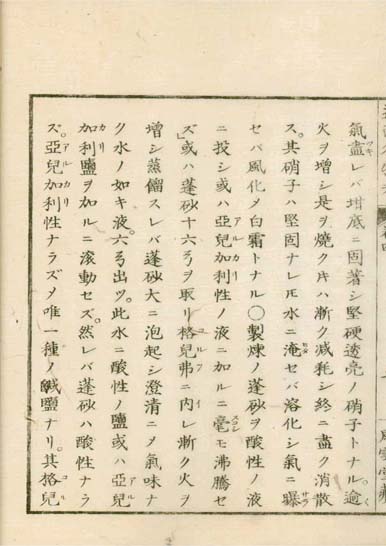 氣盡レバ坩底ニ固著シ堅硬透亮ノ硝子トナル。逾
火ヲ增シ是ヲ燒クキハ漸ク減耗シ終ニ盡ク消散
ス。其硝子ハ堅固ナレ𪜈水ニ淹セバ溶化シ氣ニ曝
セバ風化メ白霜トナル〇製煉ノ蓬砂ヲ酸性ノ液
ニ投シ或ハ亞兒加利性ノ液ニ加ルニ毫モ沸騰セ
ズ」或ハ蓬砂十六ヲ取リ格兒弗ニ内レ漸ク火ヲ
增シ蒸餾スレバ蓬砂大ニ泡起シ澄清ニメ氣味ナ
ク水ノ如キ液。六出ツ。此水ニ酸性ノ鹽或ハ亞兒
加利鹽ヲ加ルニ滾動セズ。然レバ蓬砂ハ酸性ナラ
ズ。亞兒加利性ナラズメ唯一種ノ鹹鹽ナリ。其格兒